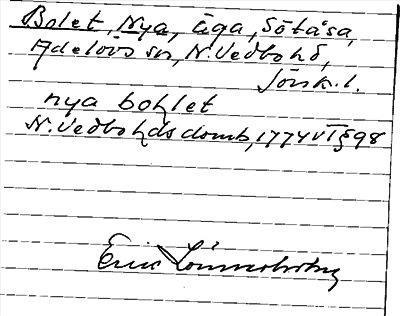 Bolet, Nya, äga, Sötåsa,
Adelövs sn, N. Vedbo hd,
Jönk. l.
nya bohlet
N. Vedbo hds domb, 1774 VI § 98
Eric